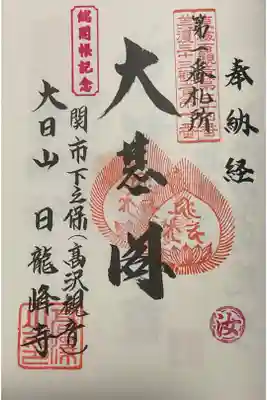 奉納経
第一番札所
大悲閣
総開帳記念
関市下之保(高沢観音)
大日山 日龍峰寺